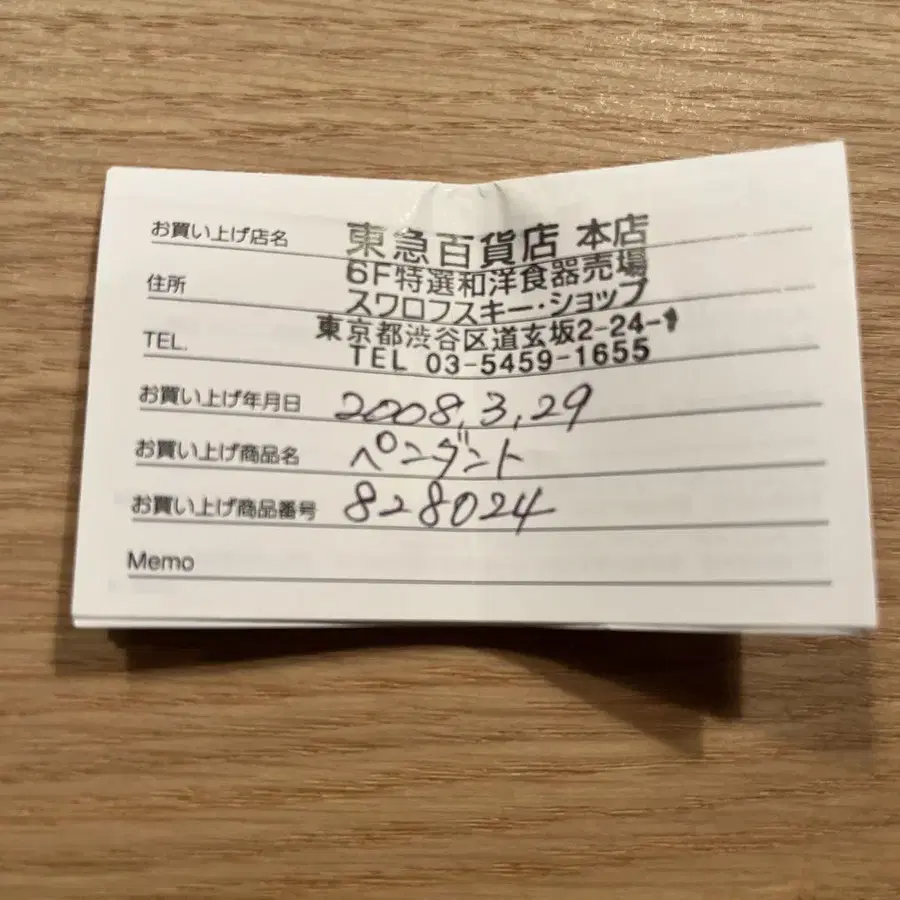 お買い上げ店名 東急百貨店 本店
6F特選和洋食器売場
住所 スワロフスキー・ショップ
東京都渋谷区道玄坂2-24-1
TEL. TEL 03-5459-1655
お買い上げ年月日 2008.3.29
お買い上げ商品名 ペンダント
お買い上げ商品番号 828024
Memo